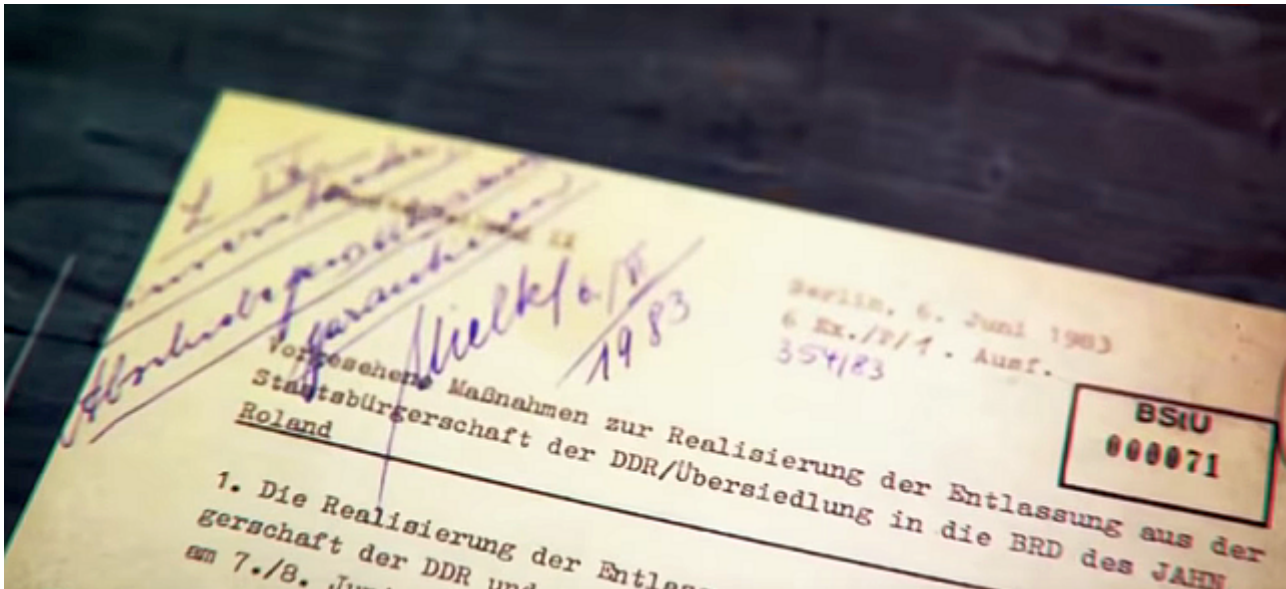 Mielke 6/VI
1983
Berlin, 6. Juni 1983
6 Ex./ /1. Ausf.
354/83
BStU
000071
Vorgesehene Maßnahmen zur Realisierung der Entlassung aus der
Staatsbürgerschaft der DDR/Übersiedlung in die BRD des JAHN
Roland
1. Die Realisierung der Entlass
gerschaft der DDR und
am 7./8. Juni